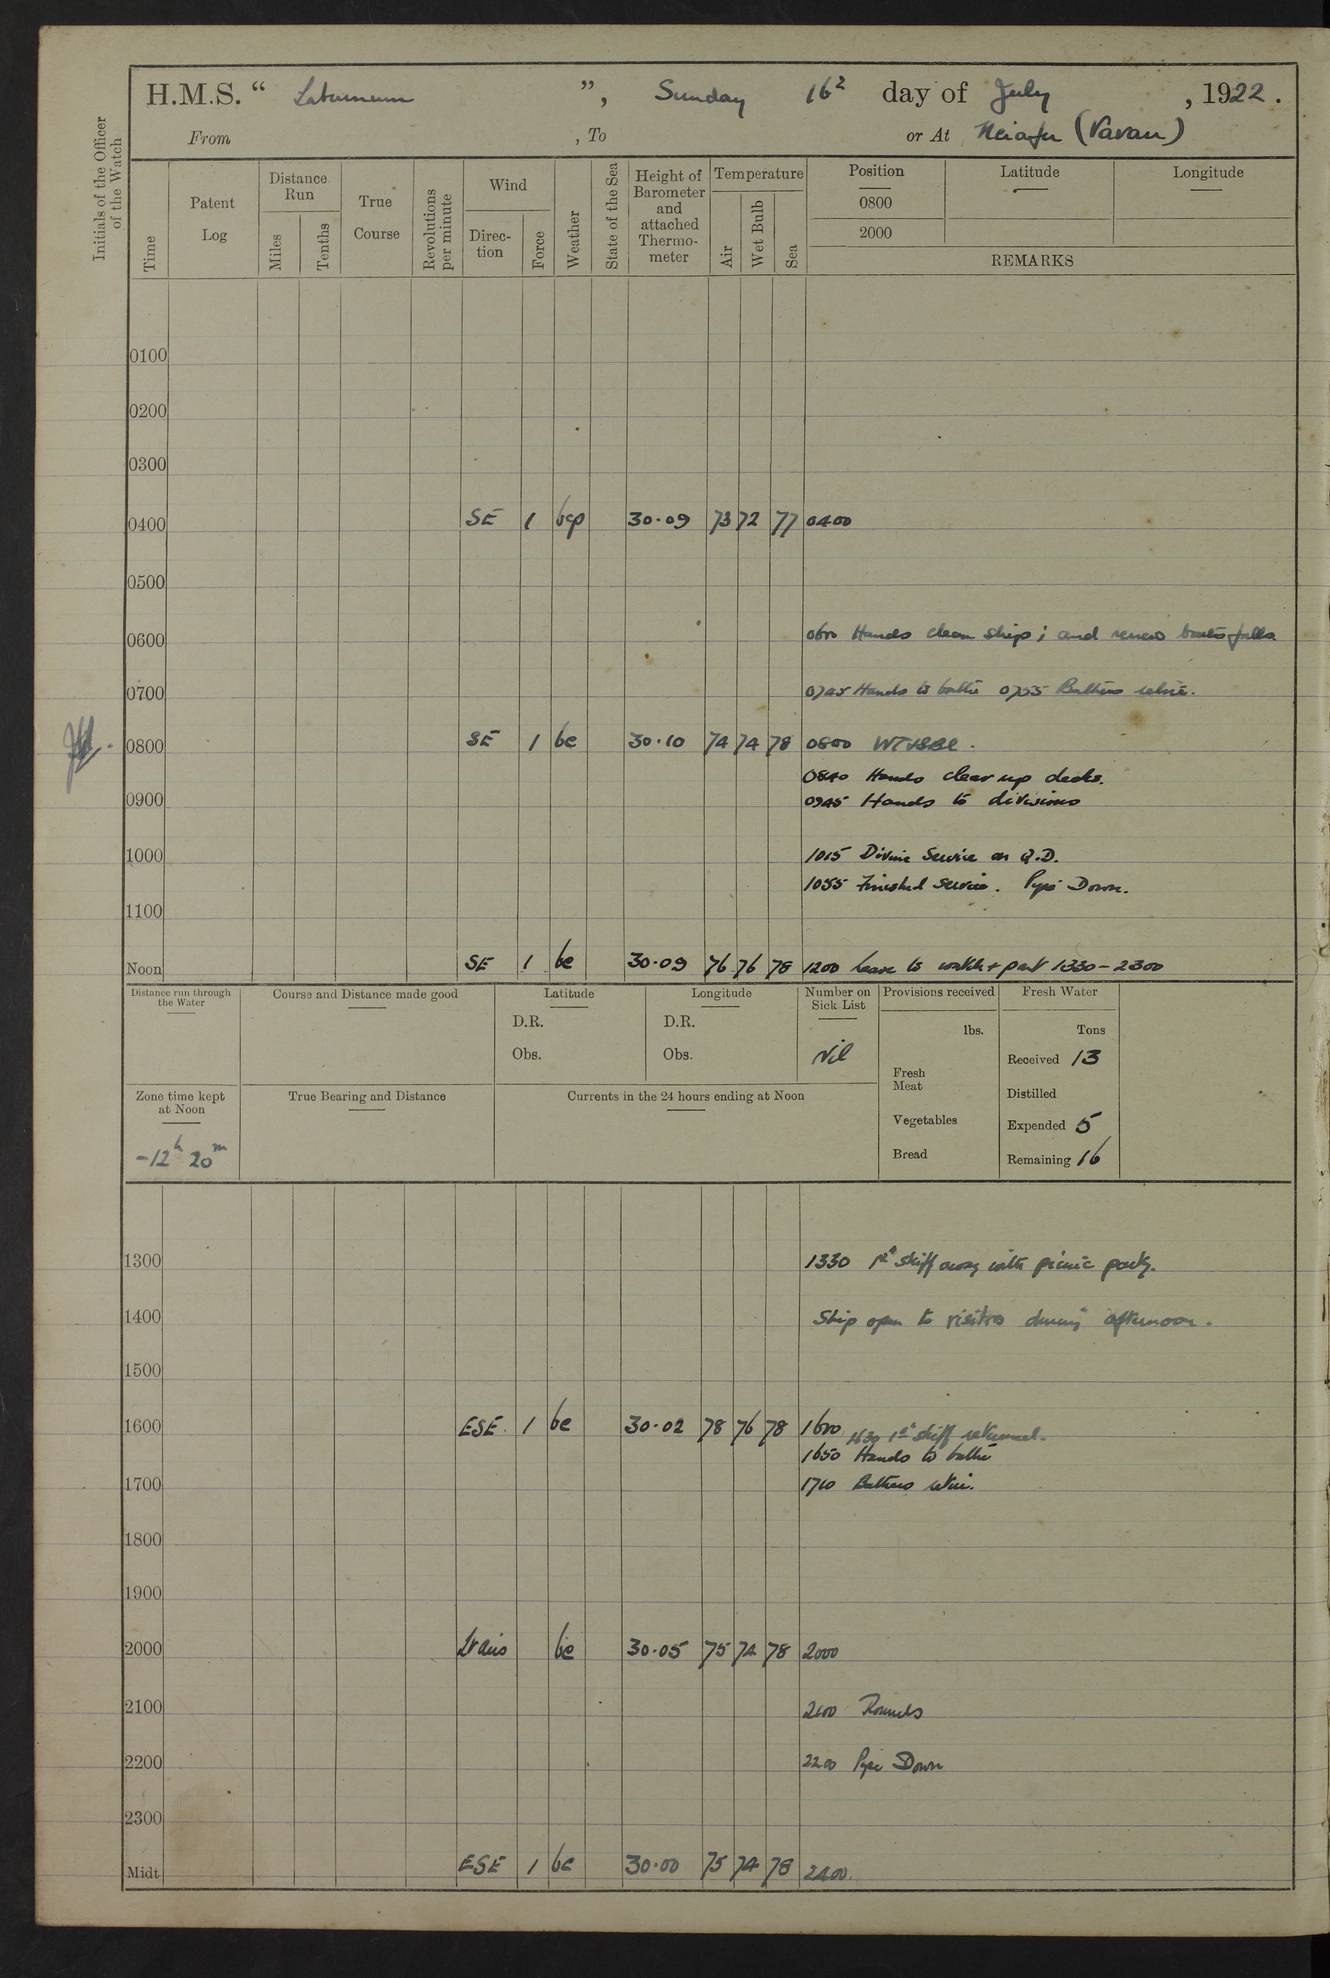 H.M.S. “ Laburnum ”, Sunday 16th day of July , 1922.
From , To or At Neiafu (Vavau)
Initials of the Officer of the Watch
Time
Patent Log
Distance Run
Miles
Tenths
True Course
Revolutions per minute
Wind
Direc-tion
Force
Weather
State of the Sea
Height of Barometer and attached Thermo-meter
Temperature
Air
Wet Bulb
Sea
Position Latitude Longitude
0800
2000
REMARKS
0100
0200
0300
0400 SE 1 bcp 30.09 73 72 77 0400
0500
0600 0600 Hands clean ship ; and renew boats falls
0700 0745 Hands to bathe 0755 Bathers retire.
0800 SE 1 bc 30.10 74 74 78 0800
0840 Hands clear up decks.
0900 0945 Hands to divisions
1000 1015 Divine Service on Q.D.
1055 Finished Service. Pipe Down.
1100
Noon SE 1 bc 30.09 76 76 78 1200 Leave to watch + part 1330 - 2300
Distance run through the Water
Course and Distance made good
Latitude
D.R.
Obs.
Longitude
D.R.
Obs.
Number on Sick List
Nil
Provisions received
lbs.
Fresh Meat
Vegetables
Bread
Fresh Water
Tons
Received 13
Distilled
Expended 5
Remaining 16
Zone time kept at Noon
-12h 20m
True Bearing and Distance
Currents in the 24 hours ending at Noon
1300 1330 1st skiff away with picnic party.
1400 Ship open to visitors during afternoon.
1500
1600 ESE 1 bc 30.02 78 76 78 1600 1630 1st skiff returned.
1650 Hands to bathe
1700 1710 Bathers retire.
1800
1900
2000 Lt airs bc 30.05 75 74 78 2000
2100 2100 Rounds
2200 2200 Pipe Down
2300
Midt ESE 1 bc 30.00 75 74 78 2400.